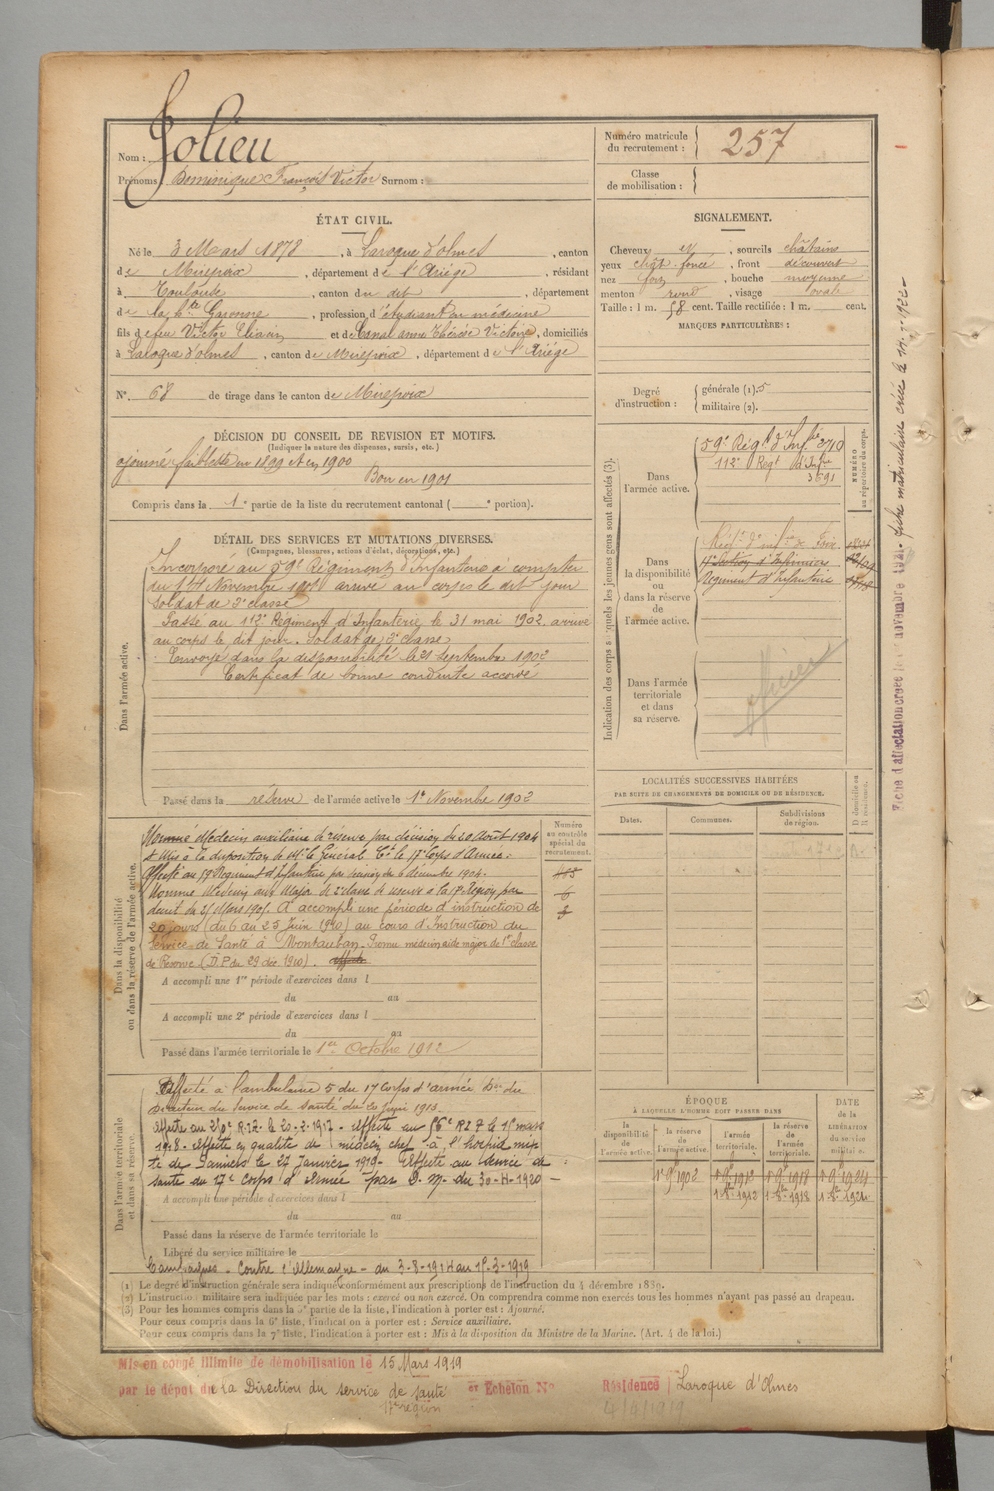 Nom : Jolieu
Prénoms : Dominique François Victor Surnom :
Numéro matricule du recrutement : 257
Classe de mobilisation :
ÉTAT CIVIL.
Né le 3 Mars 1878, à Laroque d'olmes, canton
de Mirepoix, département de l'Ariége, résidant
à Toulouse, canton du dit, département
de la hte Garonne, profession d'étudiant en médecine
fils de feu Victor et de Canal anne Thérèse Victoire, domiciliés
à Laroque d'olmes, canton de Mirepoix, département de l'Ariége
N° 68 de tirage dans le canton de Mirepoix
SIGNALEMENT.
Cheveux et, sourcils châtains
yeux chât. foncé, front découvert
nez, bouche moyenne
menton rond, visage ovale
Taille : 1 m. 58 cent. Taille rectifiée : 1 m. cent.
MARQUES PARTICULIÈRES :
Degré d'instruction : générale (1). 5
militaire (2).
DÉCISION DU CONSEIL DE REVISION ET MOTIFS.
(Indiquer la nature des dispenses, sursis, etc.)
ajourné faiblesse en 1899 et en 1900
Bon en 1901
Compris dans la 1e partie de la liste du recrutement cantonal ( e portion).
DÉTAIL DES SERVICES ET MUTATIONS DIVERSES.
(Campagnes, blessures, actions d'éclat, décorations, etc.)
Dans l'armée active.
Incorporé au 59e Régiment d'Infanterie à compter
du 14 Novembre 1901 arrivé au corps le dit jour
soldat de 2e classe
Passé au 112e Régiment d'Infanterie le 31 mai 1902 arrivé
au corps le dit jour. Soldat de 2e classe
Envoyé dans la disponibilité le 21 Septembre 1902
Certificat de bonne conduite accordé
Passé dans la réserve de l'armée active le 1er Novembre 1902
Indication des corps auxquels les jeunes gens sont affectés (3).
NUMÉRO au répertoire du corps.
Dans l'armée active.
59e Régt d'Infie 2710
112e Régt d'Infie
3691
Dans la disponibilité ou dans la réserve de l'armée active.
Régt d'infie de Foix
17e Section d'Infirmiers
Régiment d'Infanterie
Dans l'armée territoriale et dans sa réserve.
officier
LOCALITÉS SUCCESSIVES HABITÉES
PAR SUITE DE CHANGEMENTS DE DOMICILE OU DE RÉSIDENCE.
Dates. Communes. Subdivisions de région.
D domicile ou R résidence.
Dans la disponibilité ou dans la réserve de l'armée active.
Numéro au contrôle spécial du recrutement.
Nommé Médecin auxiliaire de réserve par décision du 20 Août 1904
et Mis à la disposition de Mr le Général Ct le 17e Corps d'Armée.
Affecté au 59e Régiment d'Infanterie par décision du 6 décembre 1904.
Nommé Médecin aide Major de 2e classe de réserve à la 17e Région par
décret du 25 Mars 1905. A accompli une période d'instruction de
20 jours (du 6 au 25 Juin 1910) au cours d'Instruction du
Service de Santé à Montauban. Promu medecin aide major de 1e classe
de Réserve. (D.P. du 29 déc. 1910).
A accompli une 1re période d'exercices dans l
du au
A accompli une 2e période d'exercices dans l
du au
Passé dans l'armée territoriale le 1er Octobre 1912
Dans l'armée territoriale et dans sa réserve.
Affecté à l'ambulance 5 du 17 Corps d'armée Don du
Directeur du Service de santé du 20 Juin 1913.
affecté au 210e R.I.T. le 20-2-1917 - affecté au 56e R I T le 15 mars
1918 - affecté en qualité de médecin chef à l'hopital mix
te de Pamiers le 27 Janvier 1919 - affecté au service de
santé du 17e Corps d'Armée par D. M. du 30-4-1920 -
A accompli une période d'exercices dans l
du au
Passé dans la réserve de l'armée territoriale le
Libéré du service militaire le
Campagnes - Contre l'Allemagne - du 3-8-1914 au 15-3-1919
ÉPOQUE
À LAQUELLE L'HOMME DOIT PASSER DANS
la disponibilité de l'armée active. la réserve de l'armée active. l'armée territoriale. la réserve de l'armée territoriale. DATE de la LIBÉRATION du service militaire.
1er 9bre 1902 1er 9bre 1912 1er 9bre 1918 1er 9bre 1924
1-8bre-1912 1-8bre-1918 1-8bre-1924
(1) Le degré d'instruction générale sera indiqué conformément aux prescriptions de l'instruction du 4 décembre 1889.
(2) L'instruction militaire sera indiquée par les mots : exercé ou non exercé. On comprendra comme non exercés tous les hommes n'ayant pas passé au drapeau.
(3) Pour les hommes compris dans la 5e partie de la liste, l'indication à porter est : Ajourné.
Pour ceux compris dans la 6e liste, l'indication à porter est : Service auxiliaire.
Pour ceux compris dans la 7e liste, l'indication à porter est : Mis à la disposition du Ministre de la Marine. (Art. 4 de la loi.)
Mis en congé illimité de démobilisation le 15 Mars 1919
par le dépôt de la Direction du service de santé et Echelon N°
17e région
Résidence Laroque d'Olmes
4/4/1919
Fiche d'affectation créée le novembre 1921. fiche matriculaire créée le